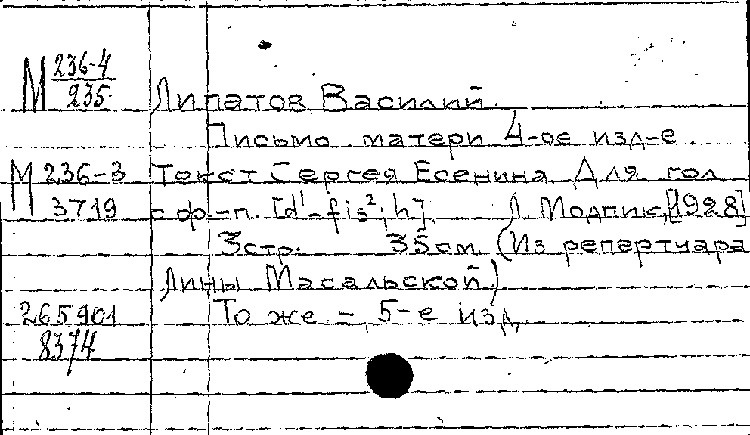 М 236-4
235
Липатов Василий.
Письмо матери 4-ое изд-е.
М 236-3 Текст Сергея Есенина. Для гол.
3719 с ф-п. [d¹-fis²; h]. Л. Модпик, [1928]
3 стр. 35 см. (Из репертуара
Лины Масальской)
265901 То же – 5-е изд.
8374